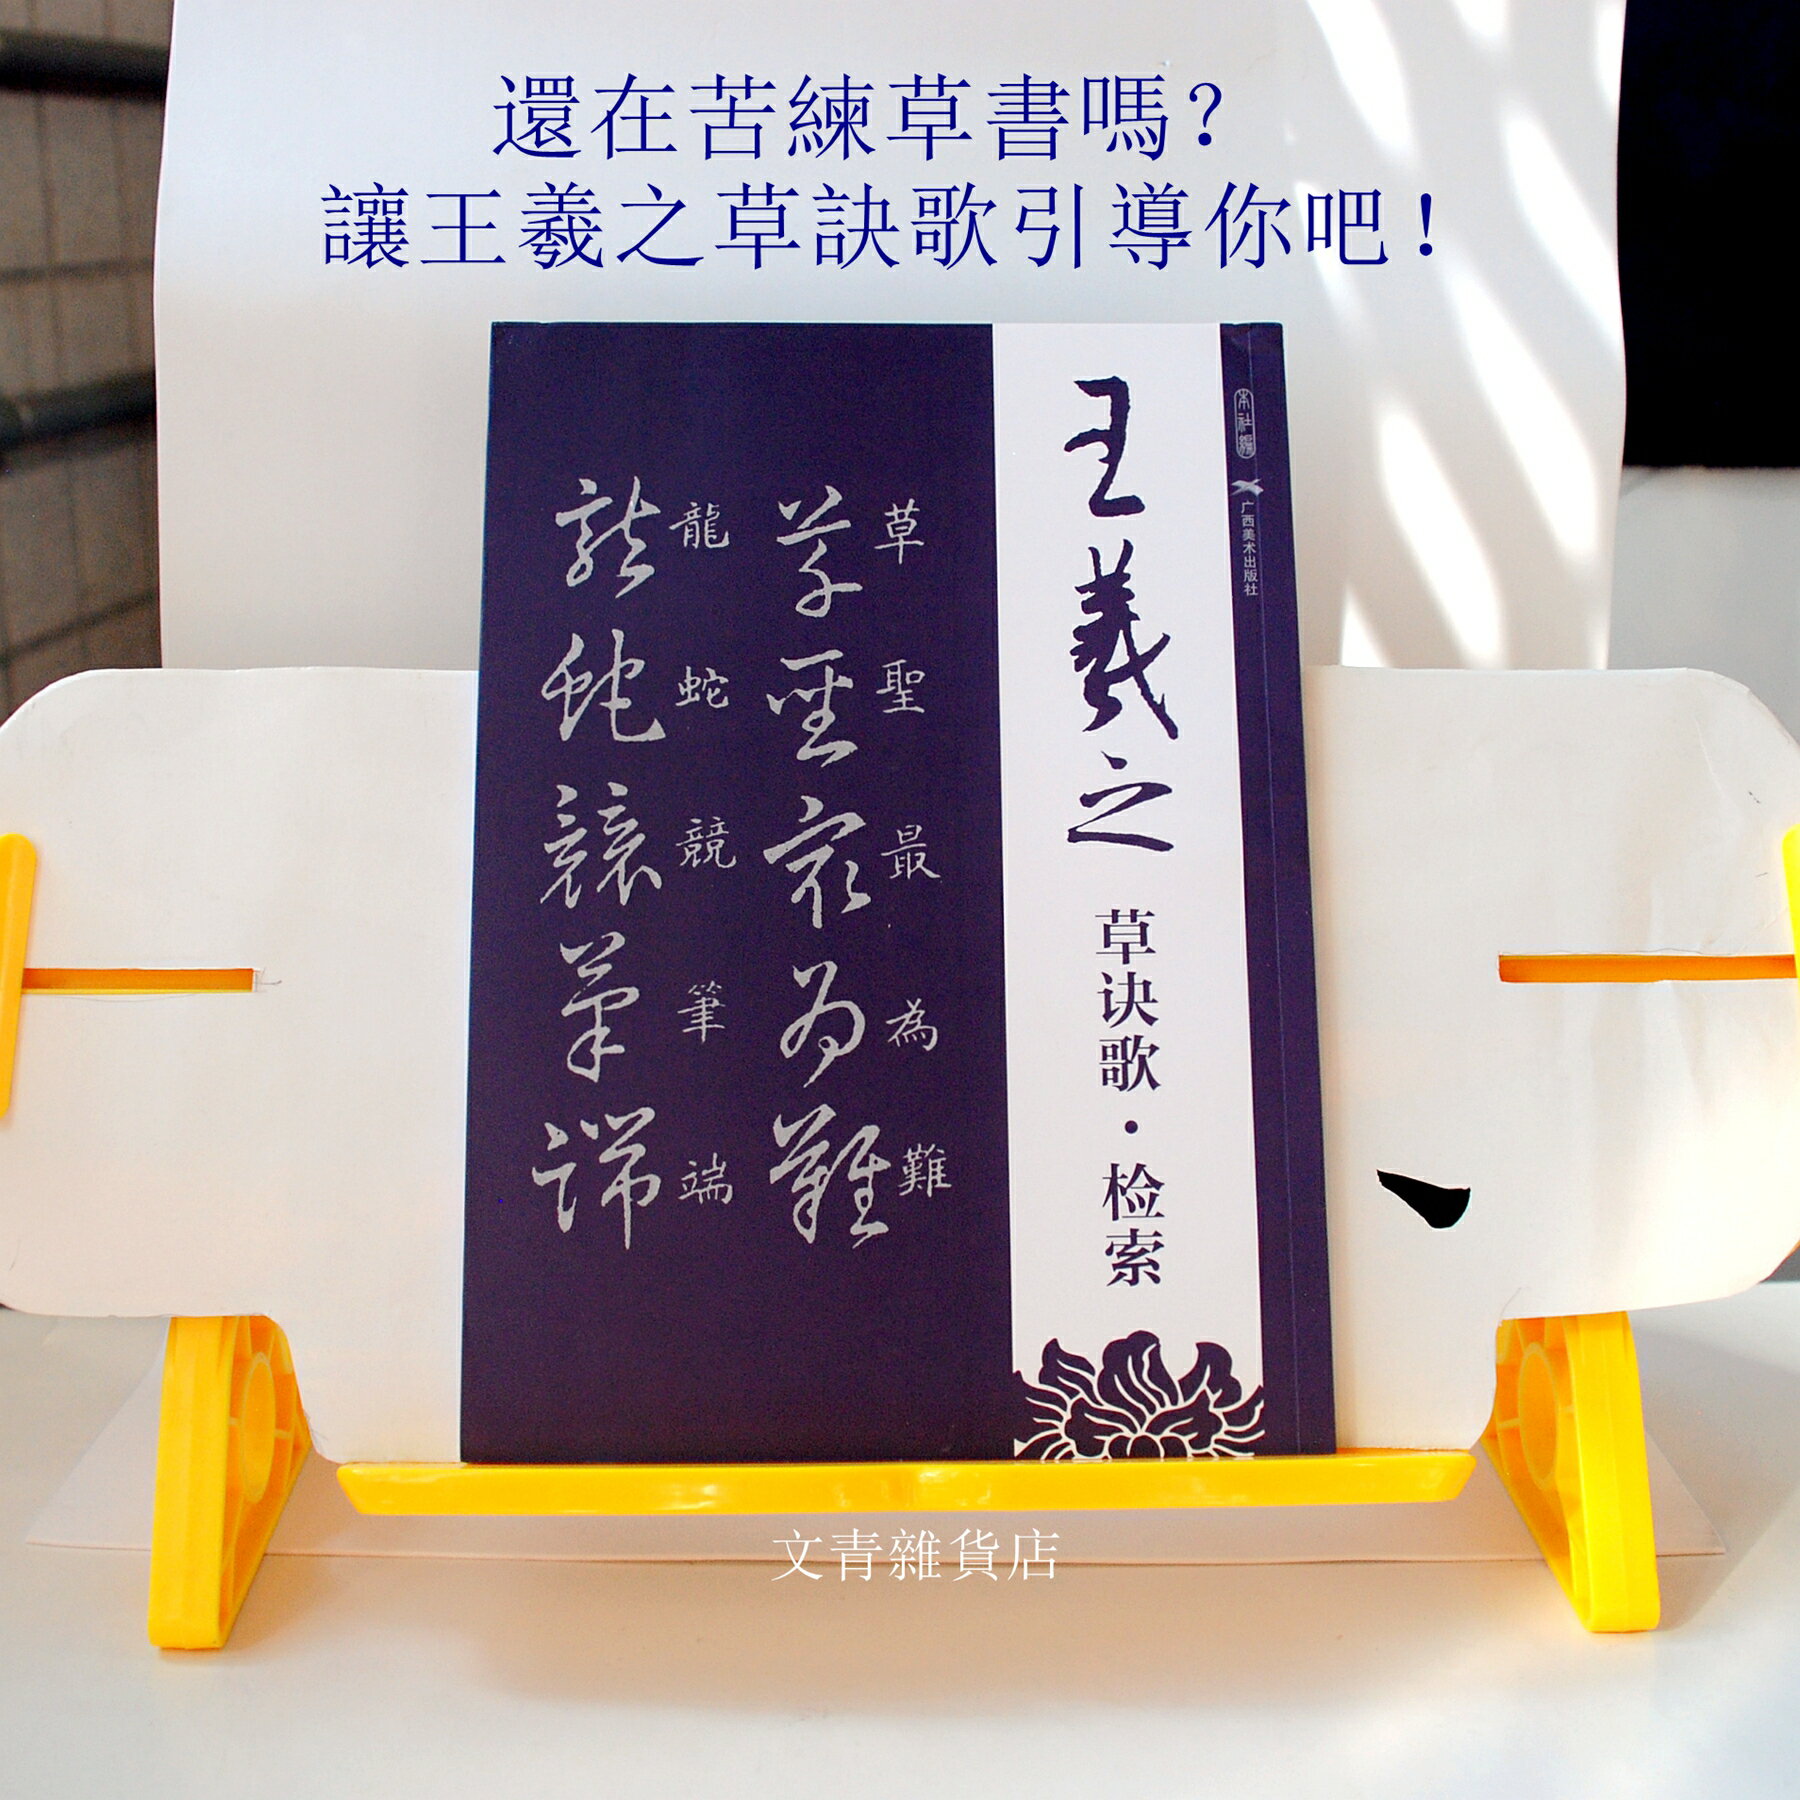 還在苦練草書嗎？
讓王羲之草訣歌引導你吧！
本社編
广西美术出版社
王羲之
草诀歌·检索
草聖最為難
草聖最為難
龍蛇競筆端
龍蛇競筆端
文青雜貨店